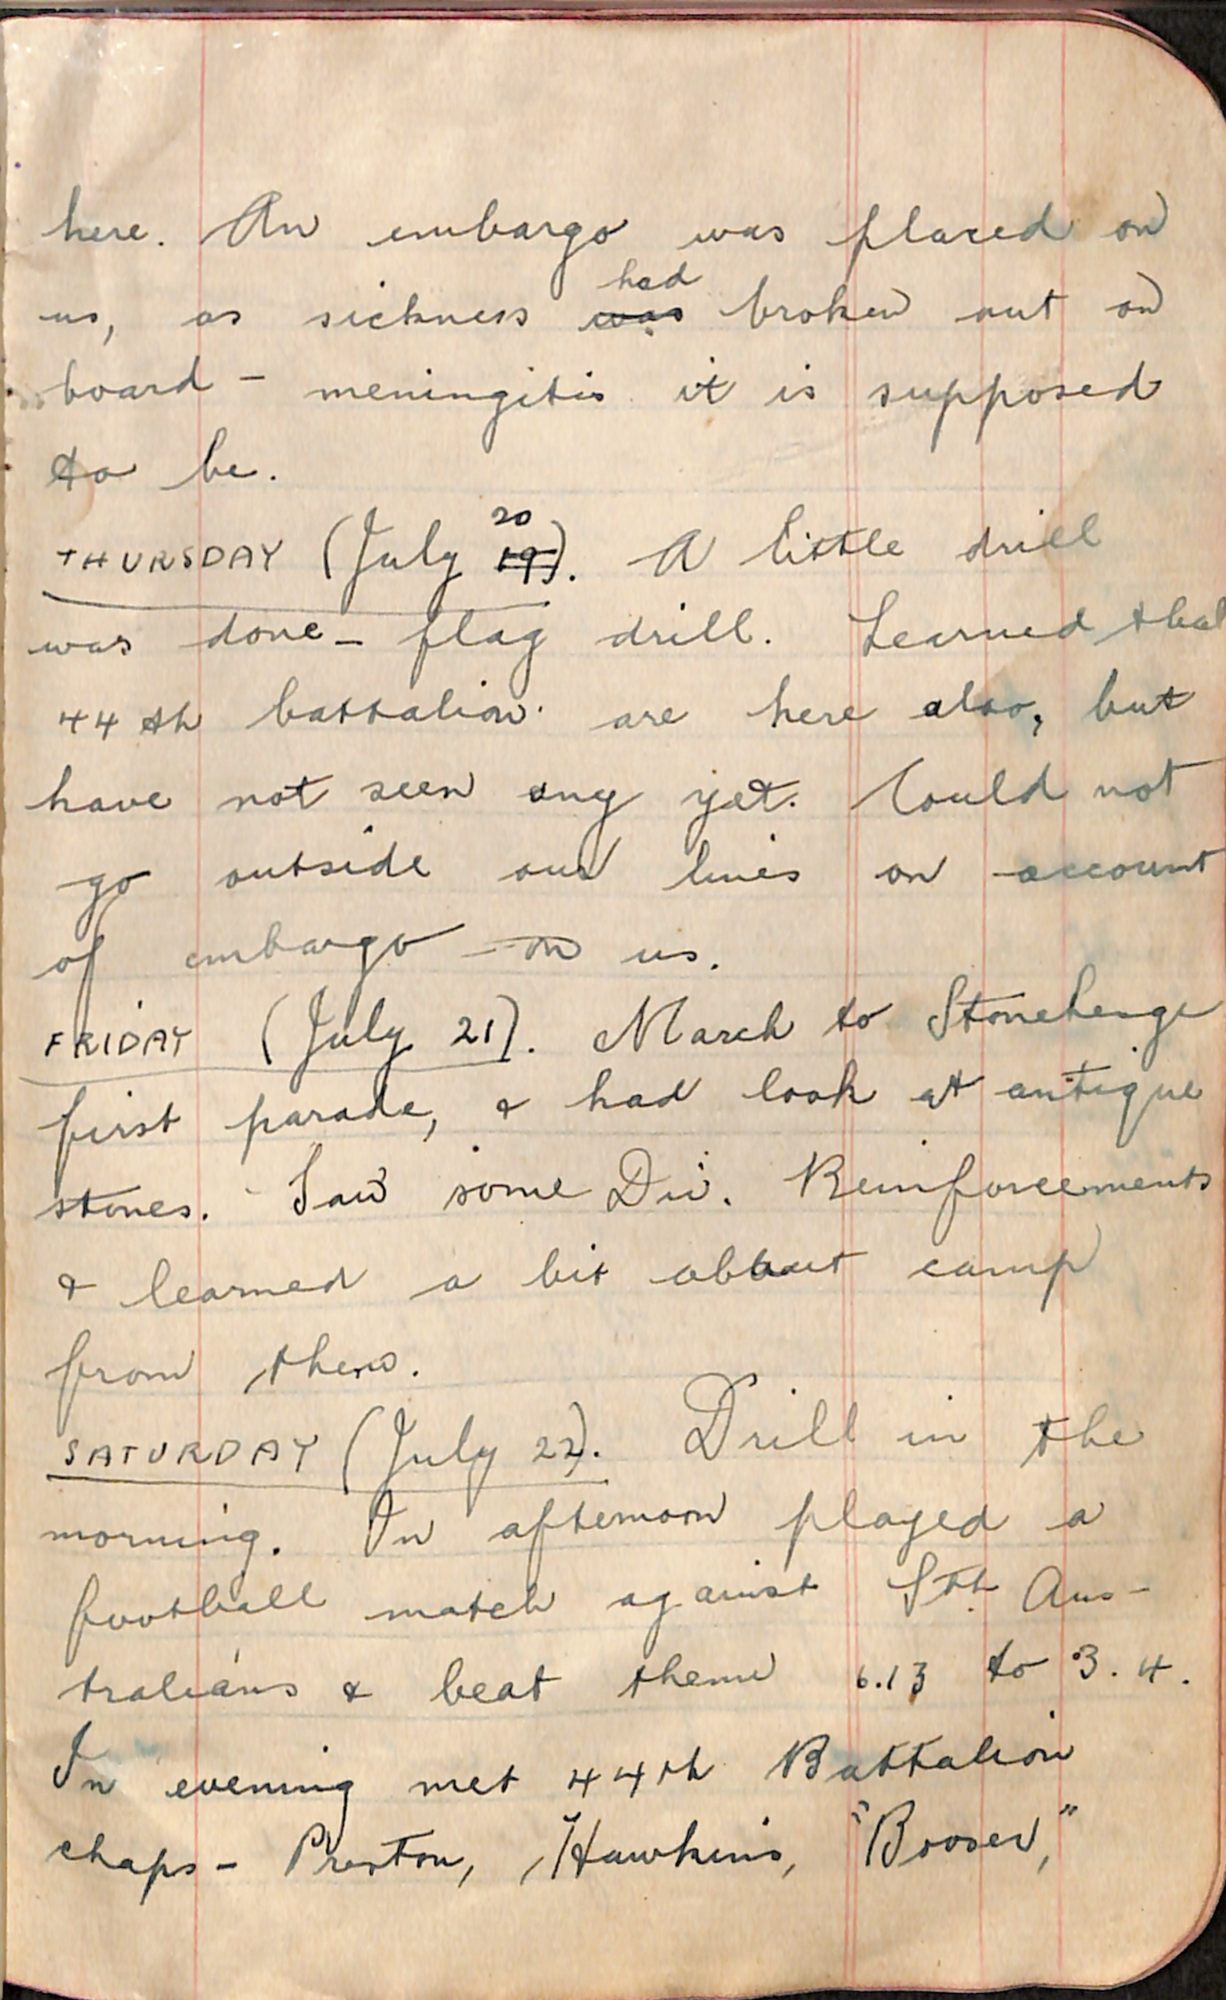 here. An embargo was placed on
us, as sickness was had broken out on
board - meningitis it is supposed
to be.
THURSDAY (July 19 20). A little drill
was done - flag drill. Learned that
44th battalion are here also, but
have not seen any yet. Could not
go outside our lines on account
of embargo on us.
FRIDAY (July 21). March to Stonehenge
first parade, & had look at antique
stones. Saw some Div. Reinforcements
& learned a bit about camp
from them.
SATURDAY (July 22). Drill in the
morning. In afternoon played a
football match against Sth Aus-
tralians & beat them 6.13 to 3.4.
In evening met 44th Battalion
chaps - Preston, Hawkins, "Booser,"